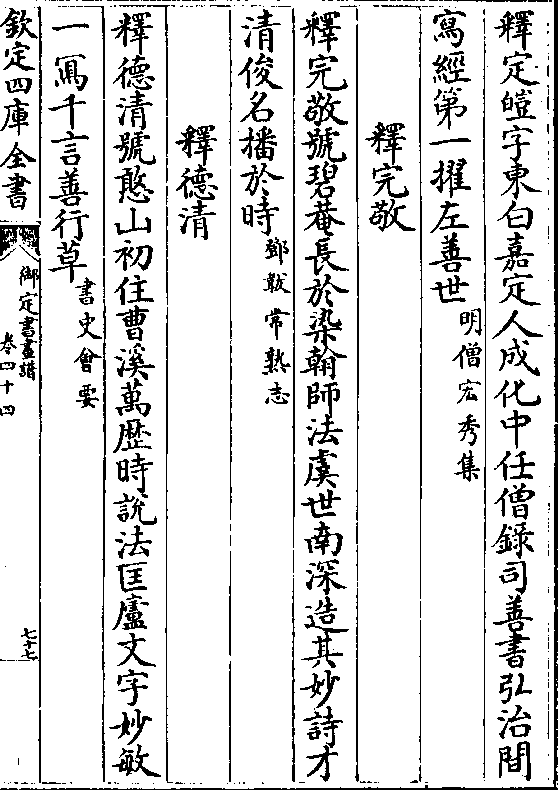 釋定皚字東白嘉定人成化中任僧錄司善書弘治間
寫經第一擢左善世明僧宏秀集
釋完敬
釋完敬號碧菴長於染翰師法虞世南深造其妙詩才
清俊名播於時鄧韍常熟志
釋德清
釋德清號憨山初住曹溪萬歴時說法匡廬文字妙敏
一寫千言善行草書史會要
欽定四庫全書
御定書畫譜
卷四十四
七十七